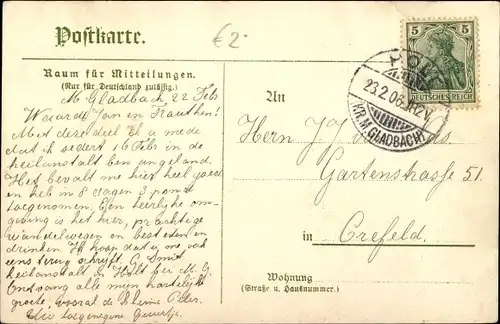 Postkarte.
€2-
Raum für Mitteilungen.
(Nur für Deutschland zulässig.)
M. Gladbach, 22 Feb
Waarde Jan en Trauthen!
Met deze deel U mede
dat ik sedert 16 Febr in de
heilanstalt ben angeland.
Het bevalt me hier heel goed
en heb in 8 dagen 3 pond
toegenomen. Een heerlijke om-
geving is het hier, prachtige
wandelwegen en best eten en
drinken. Ik hoop dat u me ook
eens terug schrijft. G. Smit
heilanstalt in Holt bei M. G.
Ontvang alle mijn hartelijk
groete, vooral de kleine Peter.
toegenegene
An
Herrn J
Gartenstrasse 51.
in
Crefeld.
Wohnung
(Straße u. Hausnummer.)
5 5
DEUTSCHES REICH
HOLT
23.2.06. 12V.
(KR. M. GLADBACH)